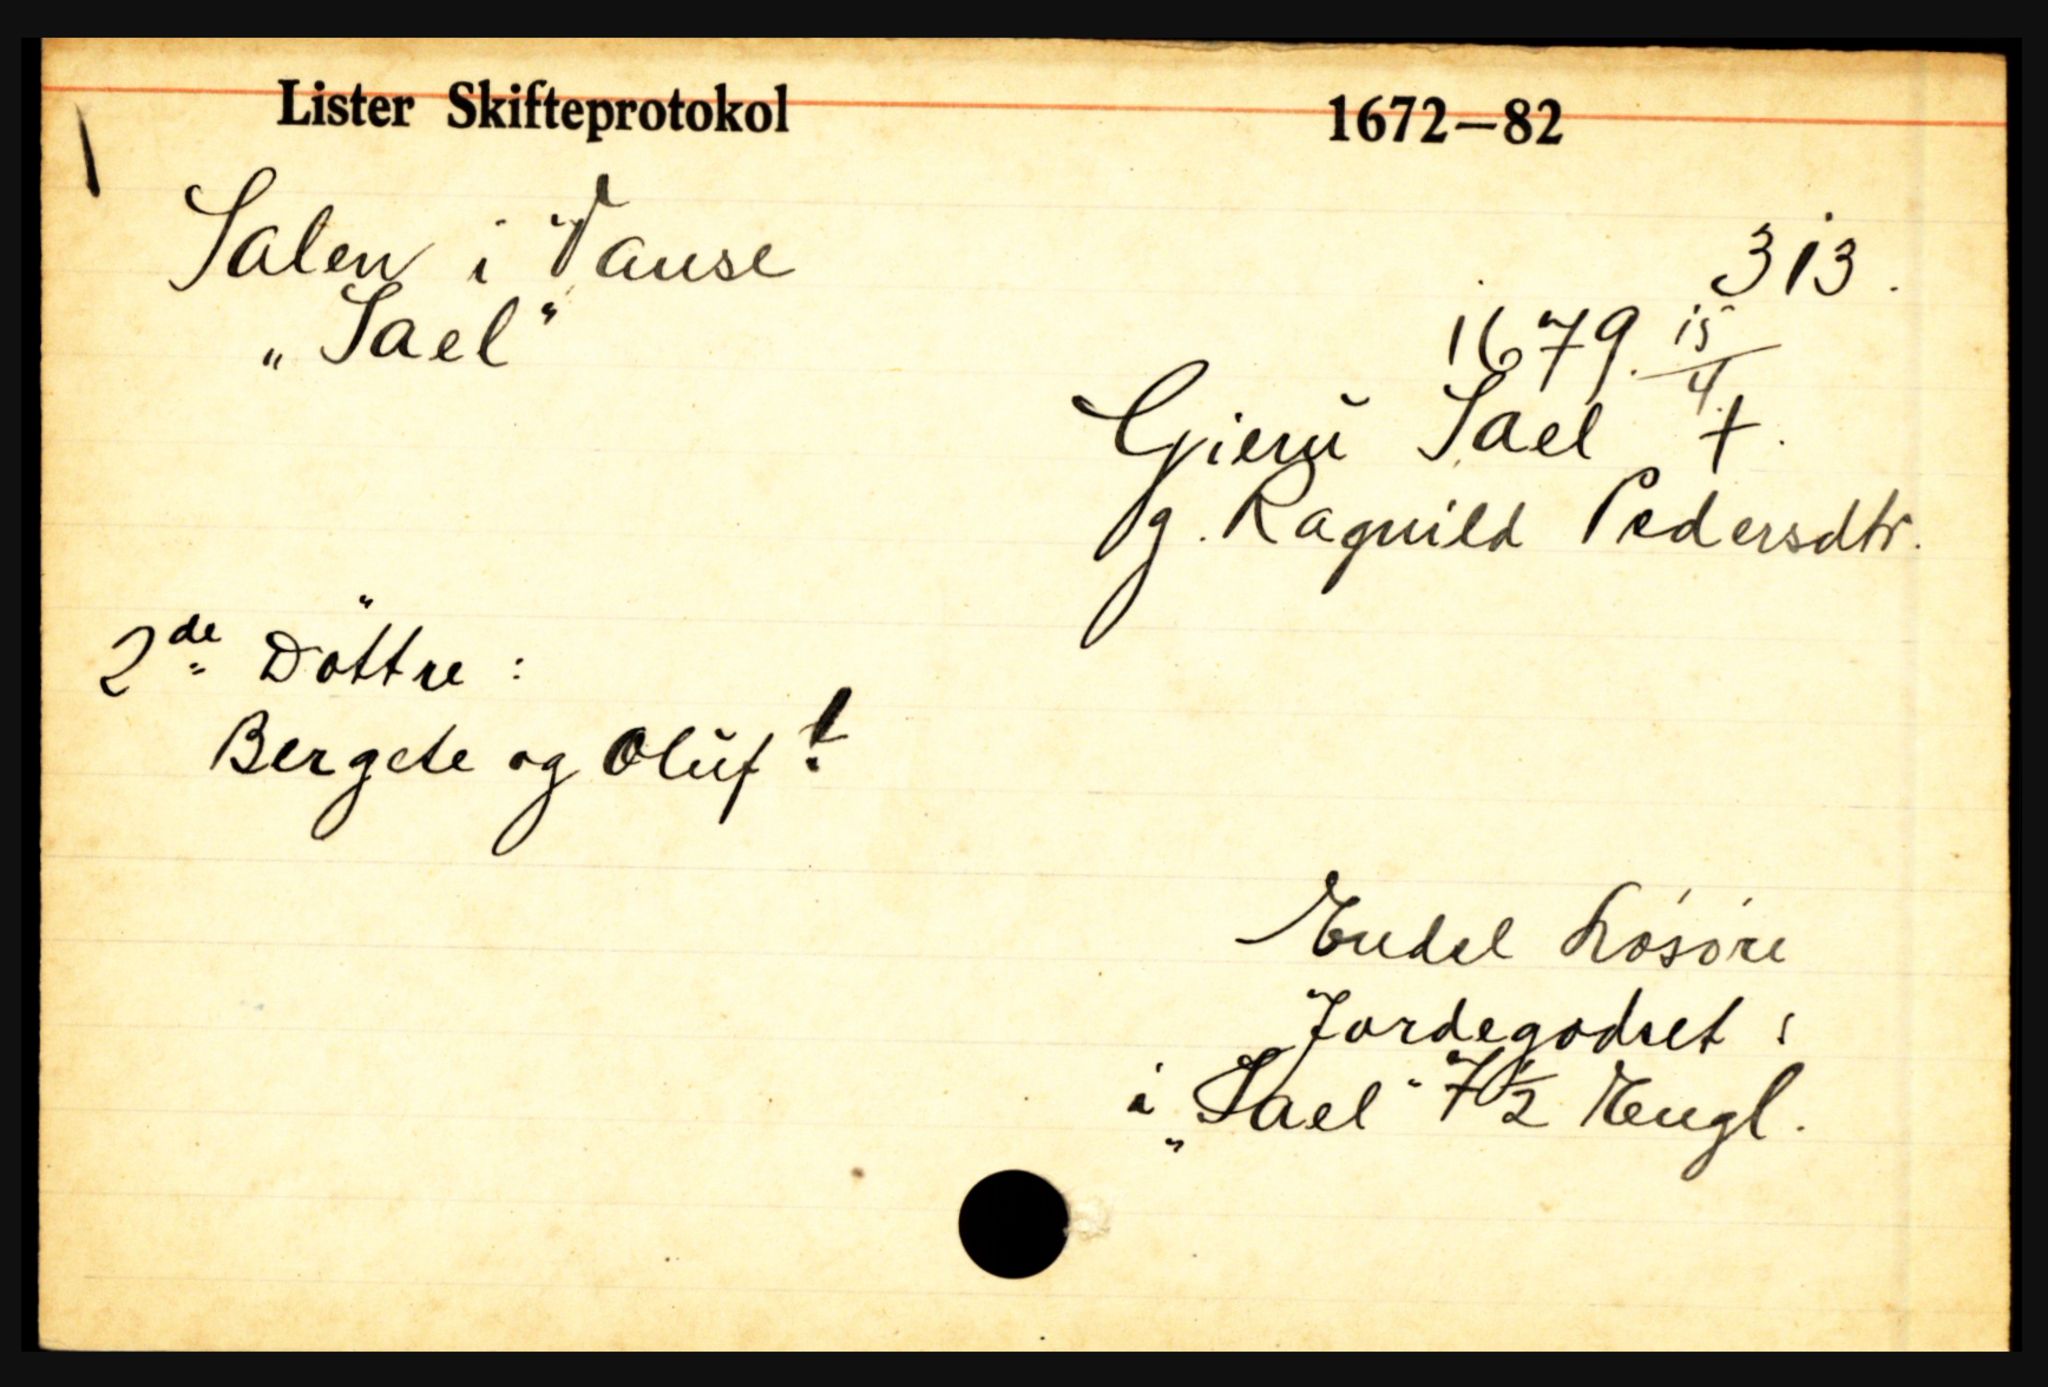 Lister Skifteprotokol 1672–82
Salen i Vanse
„Sael"
313.
1679. 15/4.
Gieru Sael †.
g. Ragnild Pedersdtr.
2de Döttre :
Bergete og Oluf !
Endel Lösöre
Jordegodset :
i „Sael" 7½ Engl.